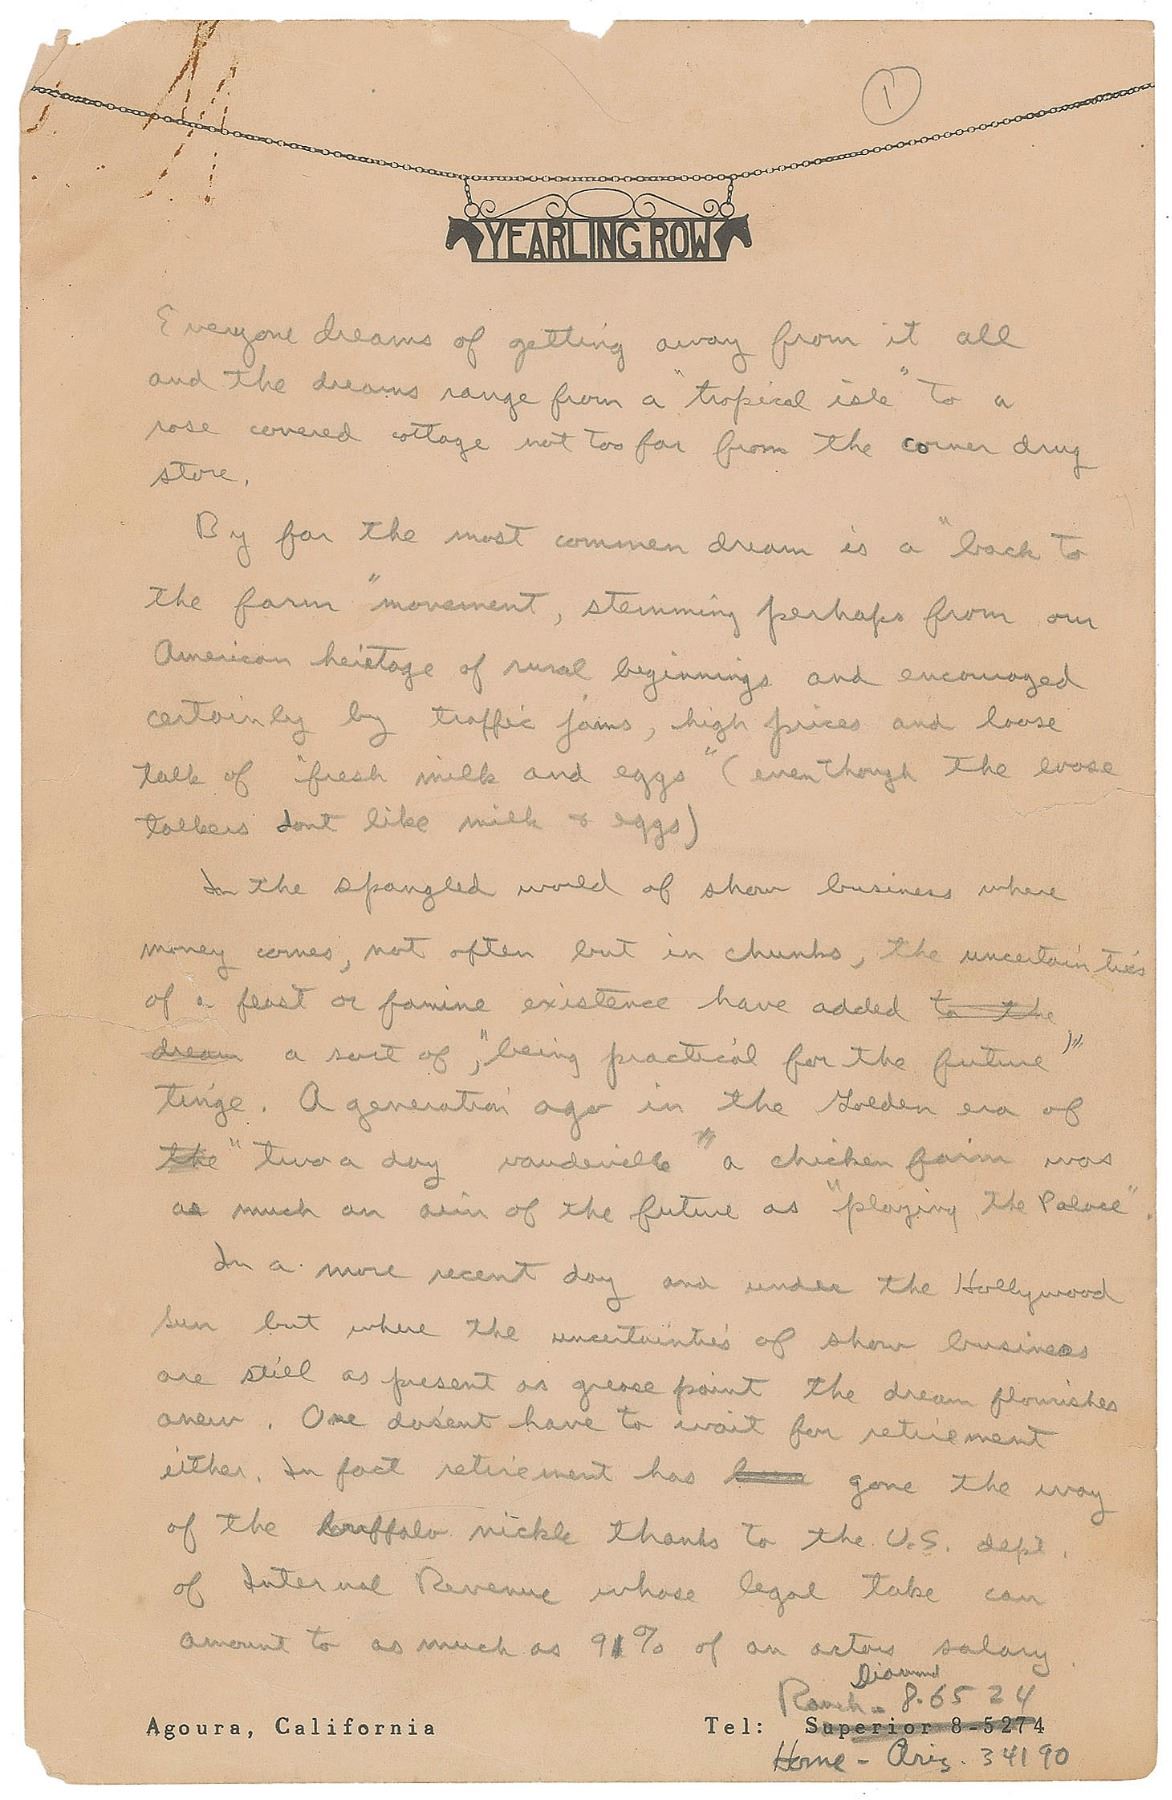 1
YEARLING ROW
Everyone dreams of getting away from it all
and the dreams range from a "tropical isle" to a
rose covered cottage not too far from the corner drug
store.
By far the most common dream is a "back to
the farm" movement, stemming perhaps from our
American heritage of rural beginnings and encouraged
certainly by traffic jams, high prices and loose
talk of "fresh milk and eggs" (even though the loose
talkers dont like milk & eggs)
In the spangled world of show business where
money comes, not often but in chunks, the uncertainties
of a feast or famine existence have added to the
dream a sort of, "being practical for the future"
tinge. A generation ago in the Golden era of
the "two a day vaudeville" a chicken farm was
as much an aim of the future as "playing the Palace".
In a more recent day and under the Hollywood
sun but where the uncertainties of show business
are still as present as grease paint the dream flourishes
anew. One dosent have to wait for retirement
either. In fact retirement has gone the way
of the buffalo nickle thanks to the U.S. dept.
of Internal Revenue whose legal take can
amount to as much as 91% of an actors salary.
Diamond
Ranch - 8-6524
Agoura, California Tel: Superior 8-5274
Home - Ariz. 34190